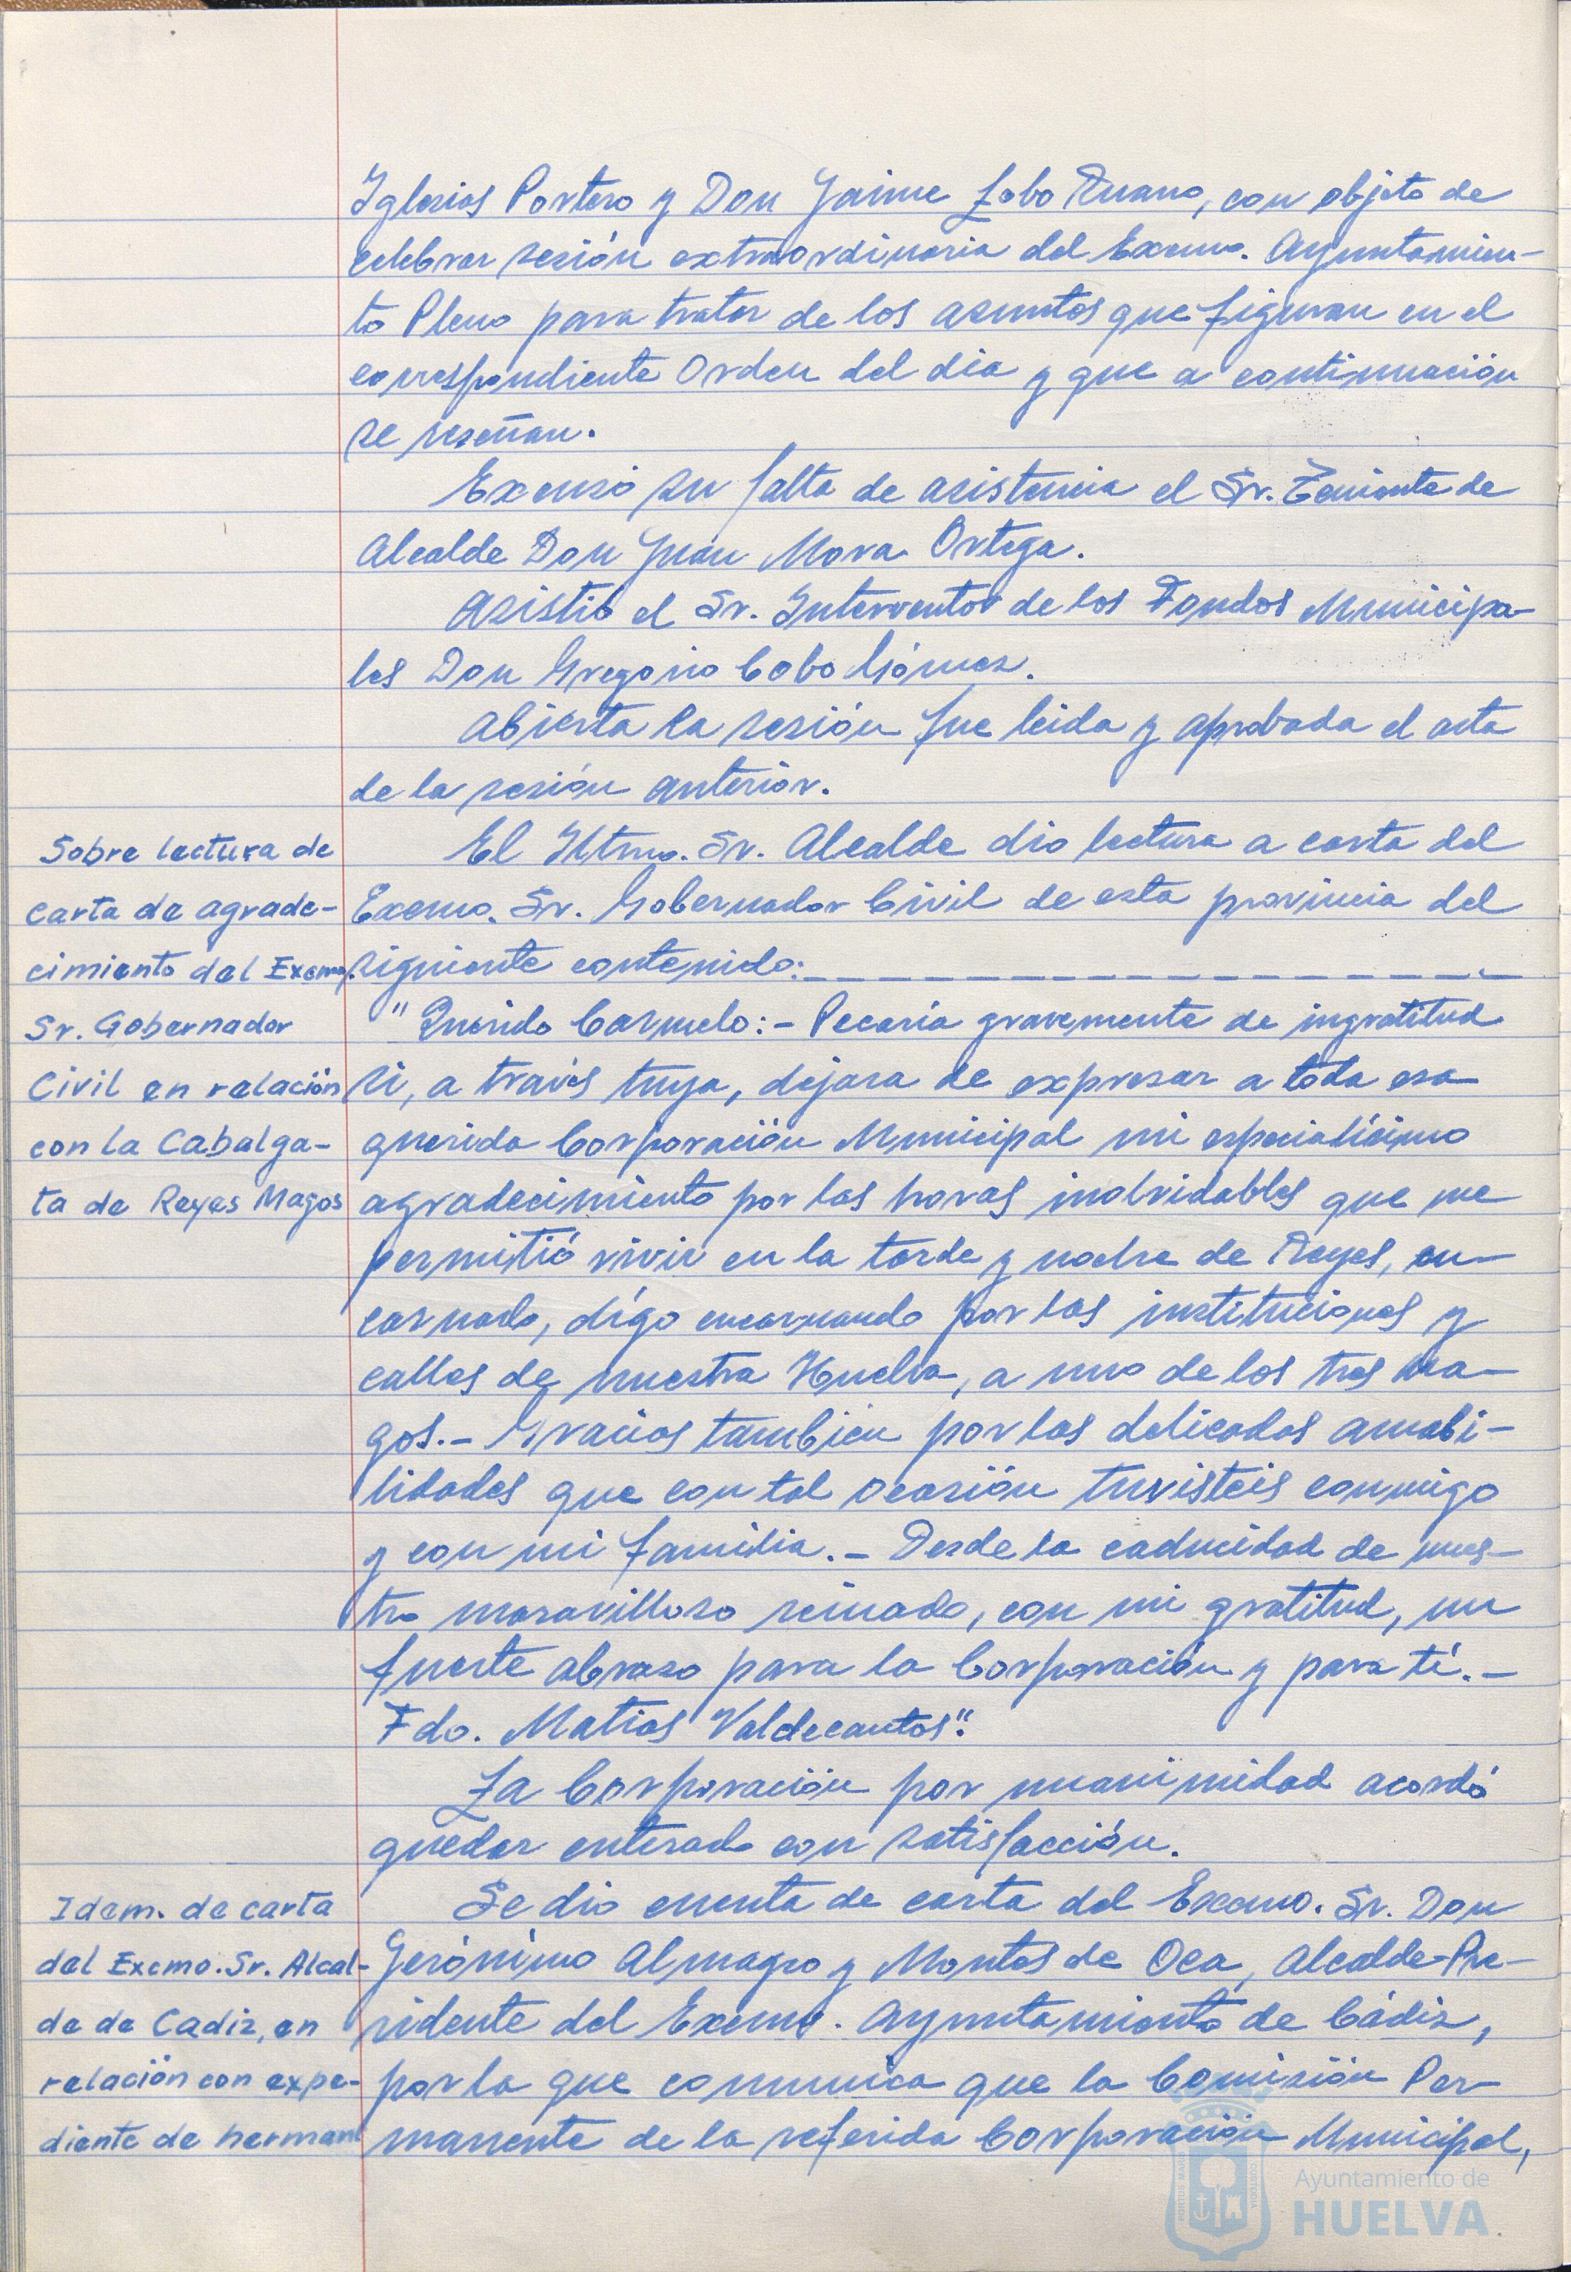 Iglesias Portero y Don Jaime Lobo Ruano, con objeto de
celebrar sesión extraordinaria del Excmo. Ayuntamien-
to Pleno para tratar de los asuntos que figuran en el
correspondiente Orden del dia y que a continuación
se reseñan.
Excusó su falta de asistencia el Sr. Teniente de
Alcalde Don Juan Mora Ortega.
Asistió el Sr. Interventor de los Fondos Municipa-
les Don Gregorio Cobo Gómez.
Abierta la sesión fue leida y aprobada el acta
de la sesión anterior.
Sobre lectura de
carta de agrade-
cimiento del Excmo.
Sr. Gobernador
Civil en relación
con la Cabalga-
ta de Reyes Magos
El Iltmo. Sr. Alcalde dio lectura a carta del
Excmo. Sr. Gobernador Civil de esta provincia del
siguiente contenido:
"Querido Carmelo:- Pecaría gravemente de ingratitud
si, a través tuya, dejara de expresar a toda esa
querida Corporación Municipal mi especialísimo
agradecimiento por las horas inolvidables que me
permitió vivir en la tarde y noche de Reyes, en-
carnado, dígo encarnando por las instituciones y
calles de nuestra Huelva, a uno de los tres ma-
gos.- Gracias tambien por las delicadas amabi-
lidades que con tal ocasión tuvisteis conmigo
y con mi familia.- Desde la caducidad de nues-
tro maravilloso reinado, con mi gratitud, un
fuerte abrazo para la Corporación y para tí.-
Fdo. Matias Valdecantos".
La Corporación por unanimidad acordó
quedar enterada con satisfacción.
Idem. de carta
del Excmo. Sr. Alcal-
de de Cadiz, en
relación con expe-
diente de herman
Se dio cuenta de carta del Excmo. Sr. Don
Gerónimo Almagro y Montes de Oca, Alcalde-Pre-
sidente del Excmo. Ayuntamiento de Cádiz,
por la que comunica que la Comisión Per-
manente de la referida Corporación Municipal,
Ayuntamiento de
HUELVA